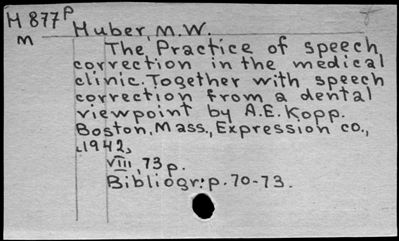 H877P Huber, M.W.
m
The Practice of speech
correction in the medical
clinic. Together with speech
correction from a dental
viewpoint by A.E. Kopp.
Boston, Mass., Expression co.,
c1942,
VIII, 73 p.
Bibliogr: p. 70-73.